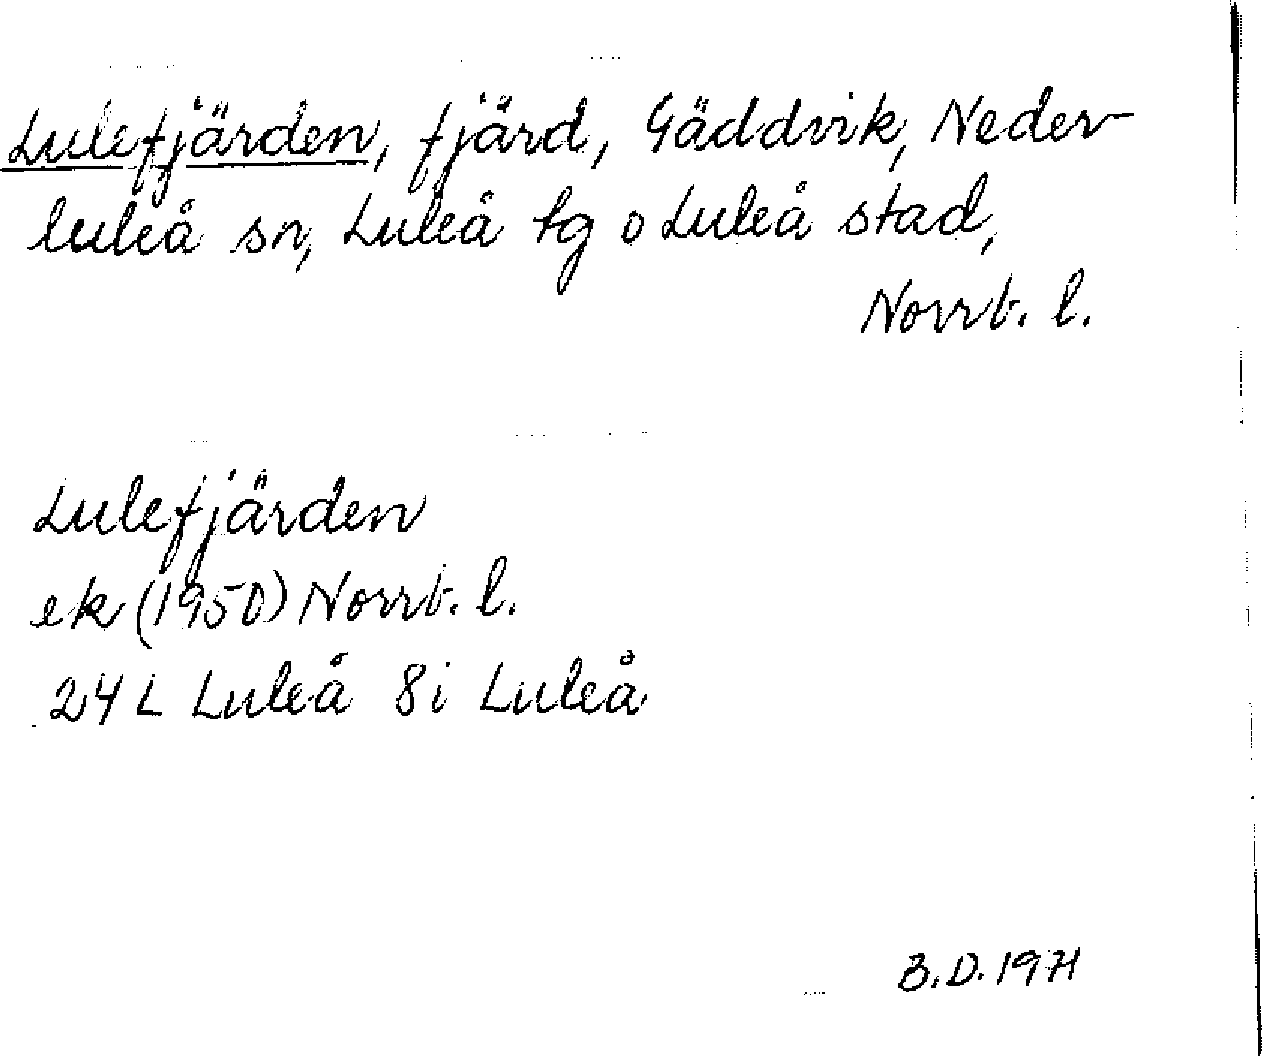 Lulefjärden, fjärd, Gäddvik, Neder-
luleå sn, Luleå tg o Luleå stad,
Norrb. l.
Lulefjärden
ek (1950) Norrb. l.
24 L Luleå 8 i Luleå
B.D. 1971